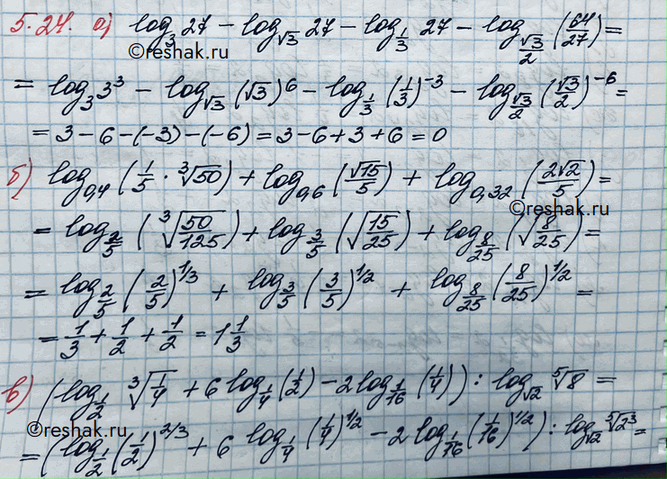 5.24. а) log₃ 27 − log_{√3} 27 − log_{1/3} 27 − log_{√3/2} (64/27) =
©reshak.ru
= log₃ 3³ − log_{√3} (√3)⁶ − log_{1/3} (1/3)⁻³ − log_{√3/2} (√3/2)⁻⁶ =
= 3 − 6 − (−3) − (−6) = 3 − 6 + 3 + 6 = 0
б) log_{0,4} (1/5 · ∛50) + log_{0,6} (√15/5) + log_{0,32} (2√2/5) =
©reshak.ru
= log_{2/5} (∛(50/125)) + log_{3/5} (√(15/25)) + log_{8/25} (√(8/25)) =
= log_{2/5} (2/5)^{1/3} + log_{3/5} (3/5)^{1/2} + log_{8/25} (8/25)^{1/2} =
= 1/3 + 1/2 + 1/2 = 1 1/3
в) (log_{1/2} ∛(1/4) + 6 log_{1/4} (1/2) − 2 log_{1/16} (1/4)) : log_{√2} ⁵√8 =
©reshak.ru
= (log_{1/2} (1/2)^{2/3} + 6 log_{1/4} (1/4)^{1/2} − 2 log_{1/16} (1/16)^{1/2}) : log_{√2} ⁵√2³ =
©reshak.ru